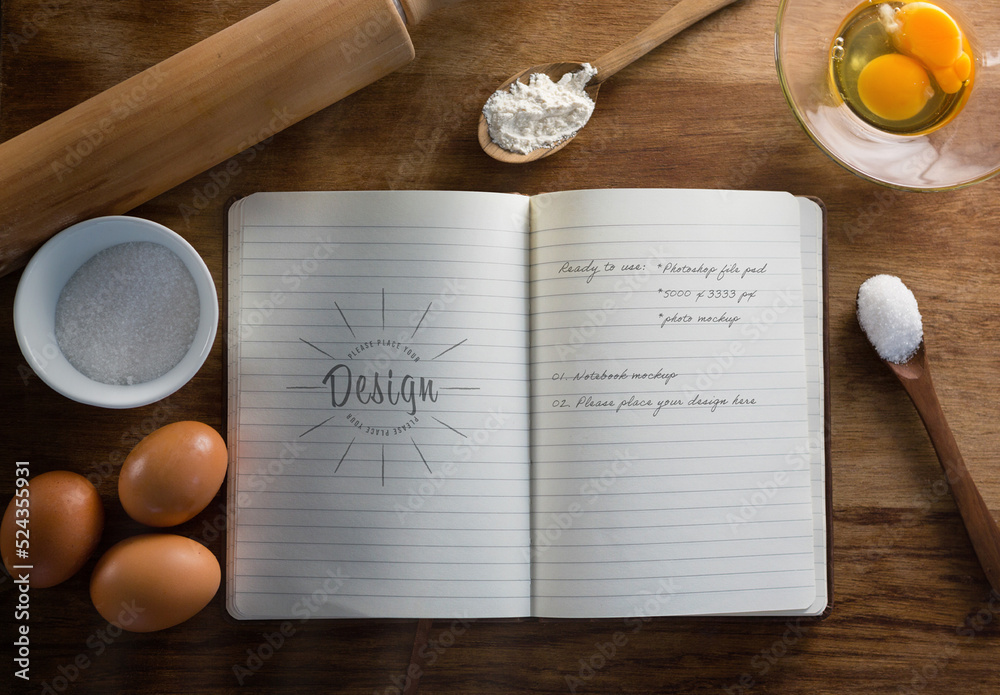 PLEASE PLACE YOUR
Design
PLEASE PLACE YOUR
Ready to use: *Photoshop file psd
*5000 x 3333 px
*photo mockup
01. Notebook mockup
02. Please place your design here
Adobe Stock | #524355931
Adobe Stock